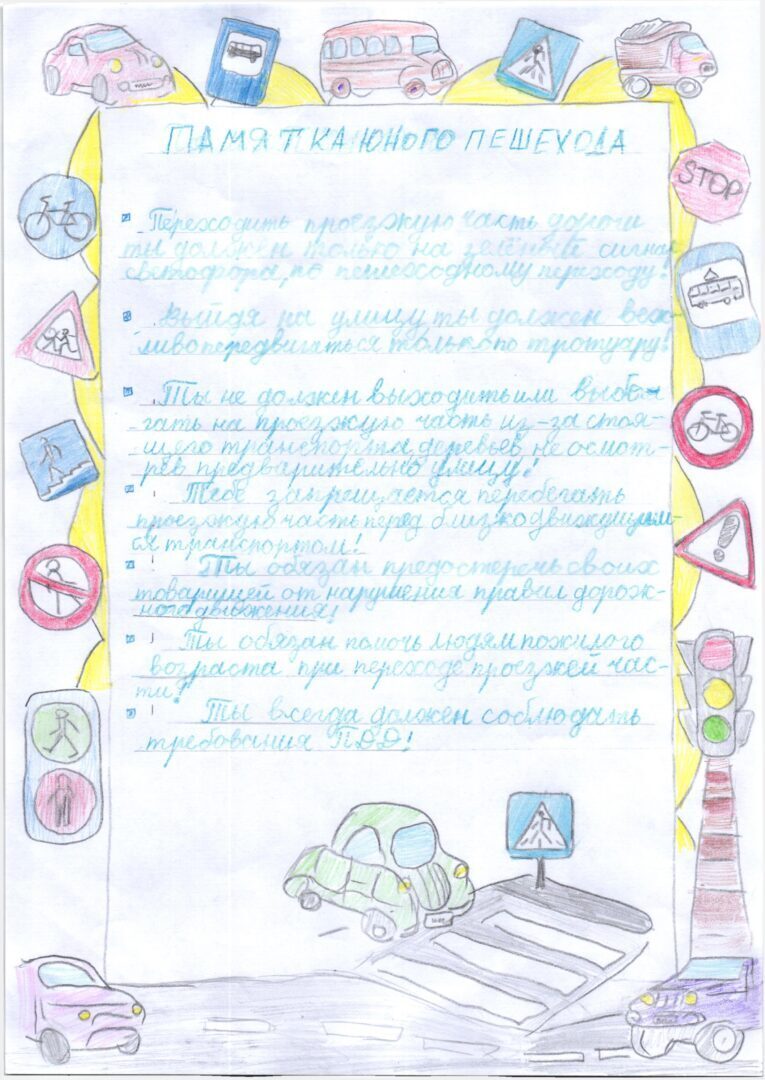 ПАМЯТКА ЮНОГО ПЕШЕХОДА
Переходить проезжую часть дороги
ты должен только на зелёный сигнал
светофора, по пешеходному переходу!
STOP
Выйдя на улицу ты должен веж-
ливо передвигаться только по тротуару!
Ты не должен выходить или выбе-
гать на проезжую часть из-за стоя-
щего транспорта, деревьев, не осмот-
рев предварительно улицу!
Тебе запрещается перебегать
проезжую часть перед близко движущим-
ся транспортом!
Ты обязан предостеречь своих
товарищей от нарушения правил дорож-
ного движения!
Ты обязан помочь людям пожилого
возраста при переходе проезжей час-
ти!
Ты всегда должен соблюдать
требования ПДД!